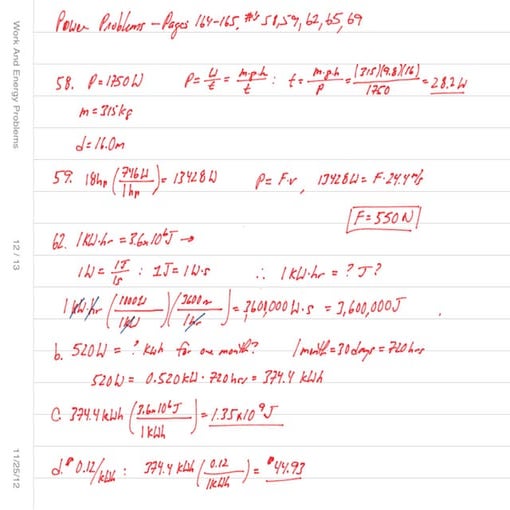 Power Problems - Pages 164-165, #'s 58, 59, 62, 65, 69
58. P = 1750 W P = W/t = m·g·h/t : t = m·g·h/P = (315)(9.8)(16)/1750 = 28.2 W
m = 315 kg
d = 16.0 m
59. 18hp (746W/1hp) = 13428 W P = F·v, 13428W = F·24.4 m/s
F = 550 N
62. 1 KW·hr = 3.6x10^6 J →
1W = 1J/1s : 1J = 1W·s ∴ 1 KW·hr = ? J?
1 KW·hr (1000W/1KW)(3600s/1hr) = 3,600,000 W·s = 3,600,000 J
b. 520W = ? KWh for one month? 1 month = 30 days = 720 hrs
520W = 0.520 KW · 720 hrs = 374.4 KWh
C. 374.4 KWh (3.6x10^6 J/1 KWh) = 1.35x10^9 J
d. $0.12/KWh : 374.4 KWh (0.12/1KWh) = $44.93
Work And Energy Problems
12 / 13
11/25/12